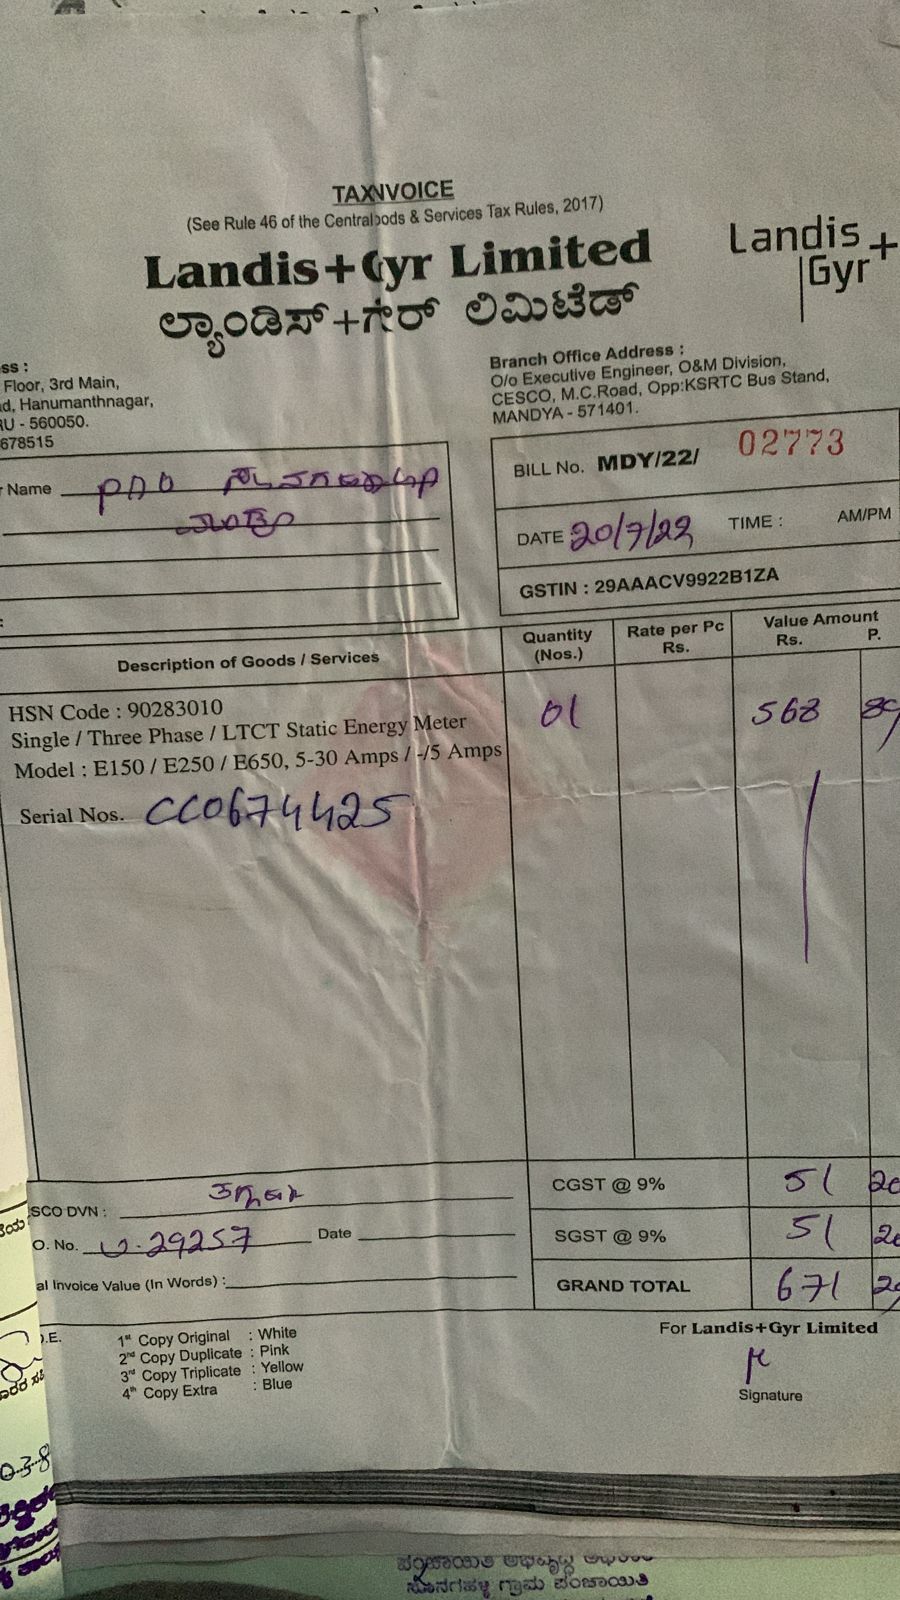 TAX INVOICE
(See Rule 46 of the Central Goods & Services Tax Rules, 2017)
Landis+Gyr Limited
ಲ್ಯಾಂಡಿಸ್+ಗೇರ್ ಲಿಮಿಟೆಡ್
Landis
Gyr+
ss :
Floor, 3rd Main,
d, Hanumanthnagar,
RU - 560050.
678515
Branch Office Address :
O/o Executive Engineer, O&M Division,
CESCO, M.C.Road, Opp:KSRTC Bus Stand,
MANDYA - 571401.
Name PDO
BILL No. MDY/22/ 02773
DATE 20/7/22 TIME : AM/PM
GSTIN : 29AAACV9922B1ZA
Description of Goods / Services
Quantity (Nos.)
Rate per Pc Rs.
Value Amount
Rs. P.
HSN Code : 90283010
Single / Three Phase / LTCT Static Energy Meter
Model : E150 / E250 / E650, 5-30 Amps / -/5 Amps
Serial Nos. CC0674425
01 568 89
CGST @ 9% 51 20
SGST @ 9% 51 20
GRAND TOTAL 671 29
SCO DVN :
O. No. 29257 Date
al Invoice Value (In Words) :
O.E.
1st Copy Original : White
2nd Copy Duplicate : Pink
3rd Copy Triplicate : Yellow
4th Copy Extra : Blue
For Landis+Gyr Limited
Signature
ಪಂಚಾಯಿತಿ ಅಭಿವೃದ್ಧಿ ಅಧಿಕಾರಿ
ಗ್ರಾಮ ಪಂಚಾಯಿತಿ